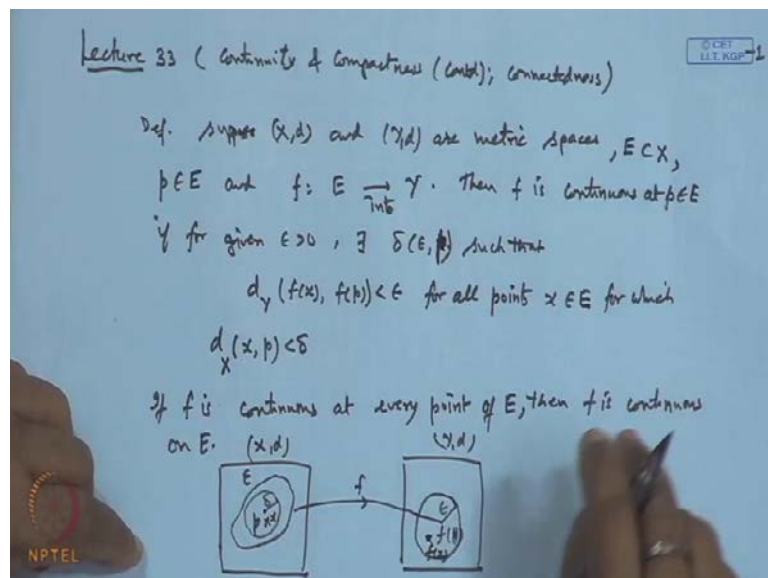 Lecture 33 ( Continuity & Compactness (Contd); Connectedness)
© CET
I.I.T. KGP
-1
Def. Suppose (X,d) and (Y,d) are metric spaces, E⊂X,
p∈E and f: E → Y. Then f is continuous at p∈E
into
if for given ε>0, ∃ δ(ε,p) such that
d_Y (f(x), f(p))<ε for all point x∈E for which
d_X (x,p)<δ
If f is continuous at every point of E, then f is continuous
on E. (X,d) (Y,d)
E f
δ ε
p x f(p)
f(x)
NPTEL